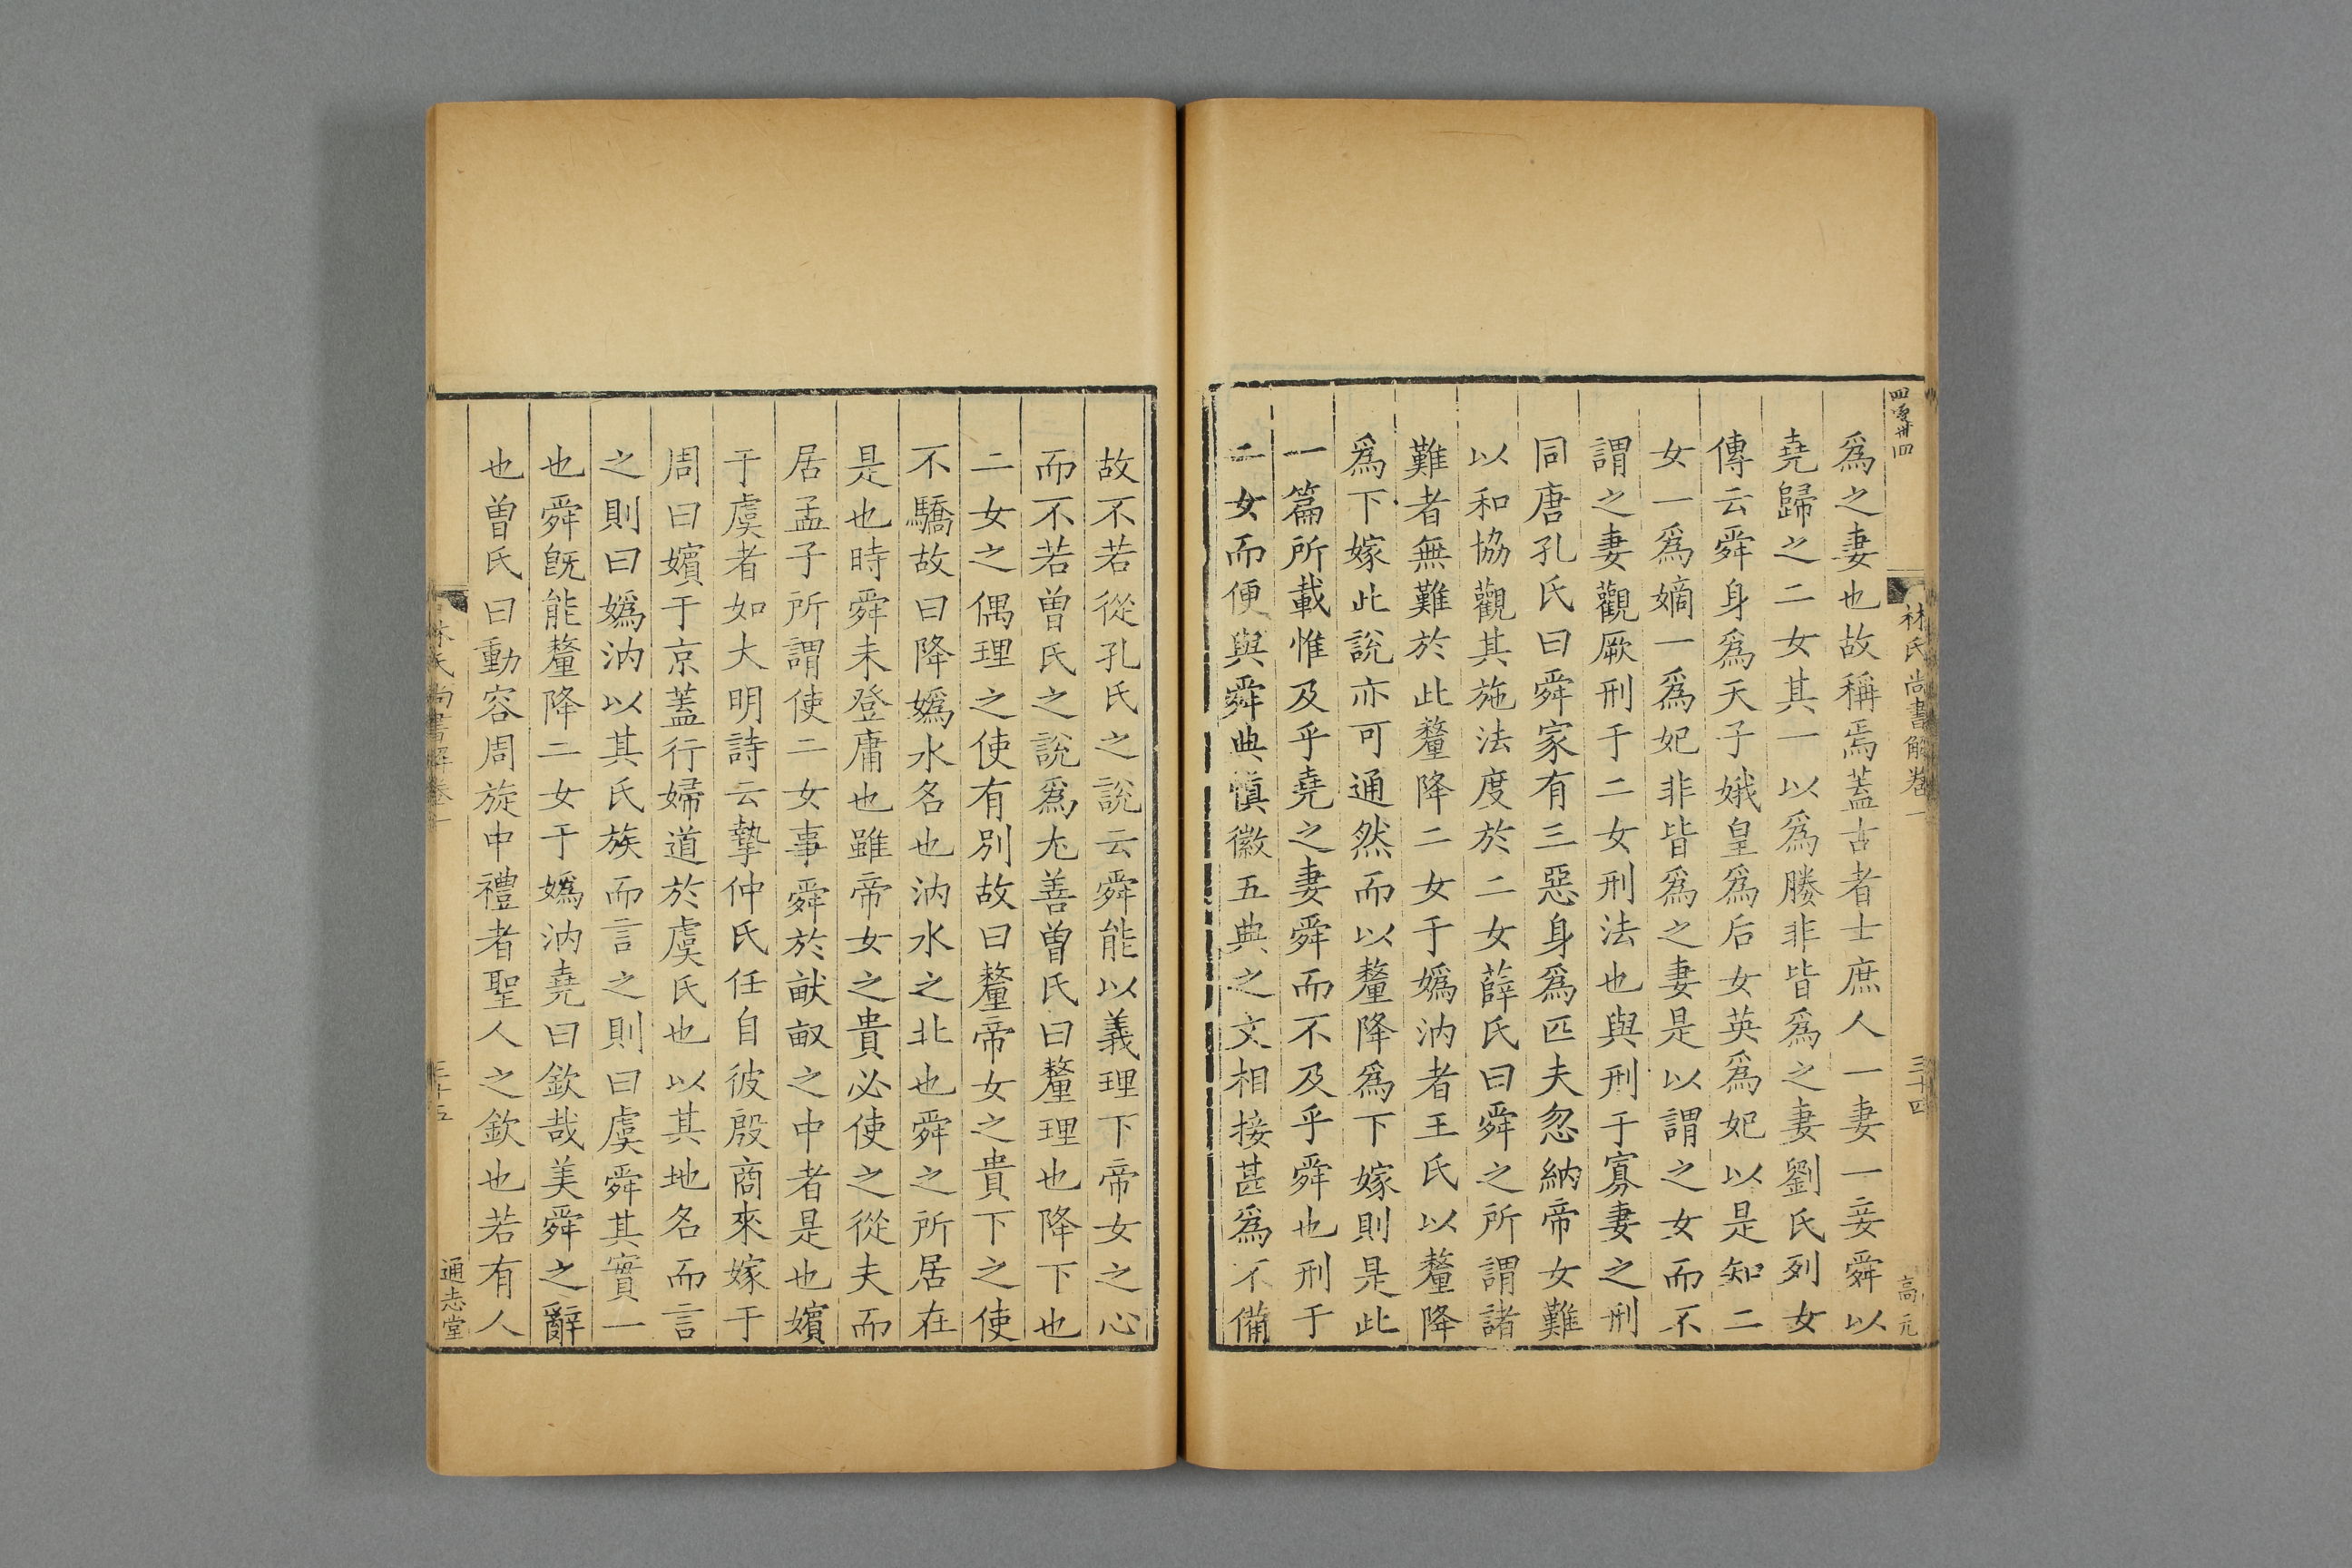 四零卅四
林氏尚書解卷一
三十四
高元
爲之妻也故稱焉蓋古者士庶人一妻一妾舜以
堯歸之二女其一以爲媵非皆爲之妻劉氏列女
傳云舜身爲天子娥皇爲后女英爲妃以是知二
女一爲嫡一爲妃非皆爲之妻是以謂之女而不
謂之妻觀厥刑于二女刑法也與刑于寡妻之刑
同唐孔氏曰舜家有三惡身爲匹夫忽納帝女難
以和協觀其施法度於二女薛氏曰舜之所謂諸
難者無難於此釐降二女于嬀汭者王氏以釐降
爲下嫁此說亦可通然而以釐降爲下嫁則是此
一篇所載惟及乎堯之妻舜而不及乎舜也刑于
二女而便與舜典愼徽五典之文相接甚爲不備
故不若從孔氏之說云舜能以義理下帝女之心
而不若曾氏之說爲尤善曾氏曰釐理也降下也
二女之偶理之使有別故曰釐帝女之貴下之使
不驕故曰降嬀水名也汭水之北也舜之所居在
是也時舜未登庸也雖帝女之貴必使之從夫而
居孟子所謂使二女事舜於畎畝之中者是也嬪
于虞者如大明詩云摯仲氏任自彼殷商來嫁于
周曰嬪于京蓋行婦道於虞氏也以其地名而言
之則曰嬀汭以其氏族而言之則曰虞舜其實一
也舜旣能釐降二女于嬀汭堯曰欽哉美舜之辭
也曾氏曰動容周旋中禮者聖人之欽也若有人
林氏尚書解卷一
三十五
通志堂